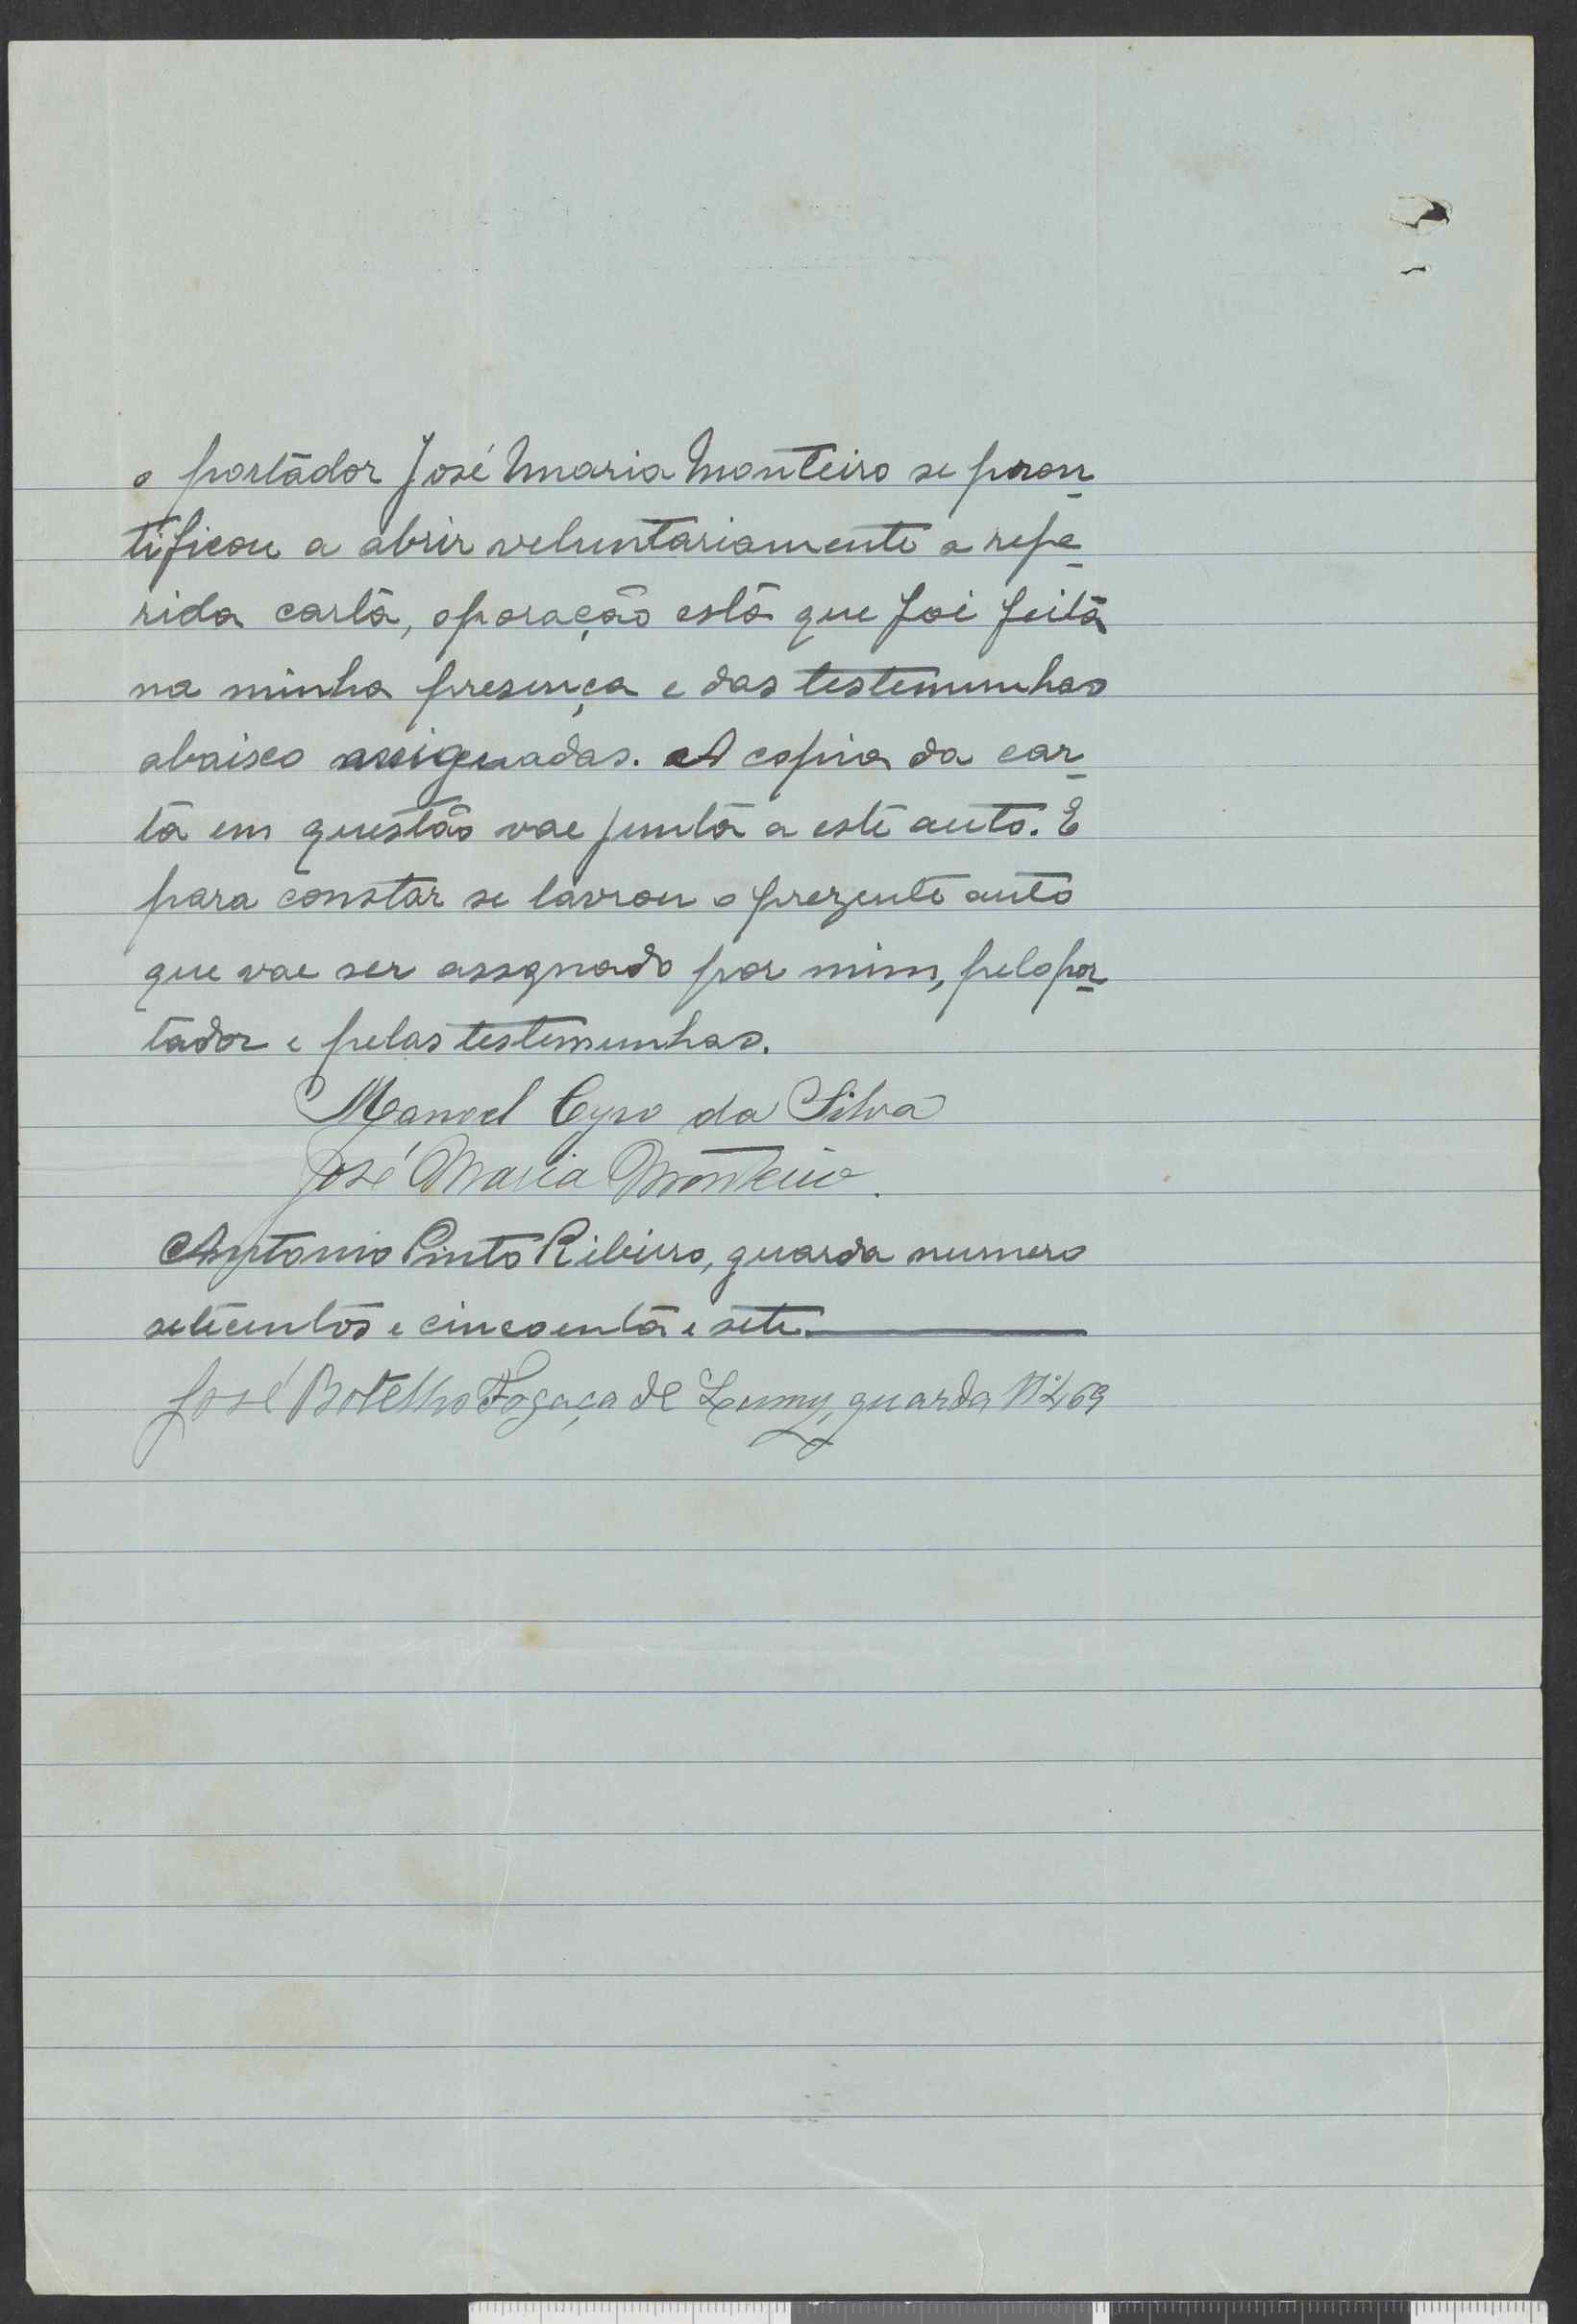 o portador José Maria Monteiro se pron
tificou a abrir veluntariamente a refe
rida carta, oparação esta que foi feita
na minha presença e das testemunhas
abaixo assignadas. A copia da car
ta em questão vae junta a este auto. E
para constar se lavrou o prezente auto
que vae ser assgnado por mim, pelo por
tador e pelas testemunhas.
Manoel Cyro da Silva
José Maria Monteiro.
Antonio Pinto Ribeiro, guarda numero
setecentos e cincoenta e sete.
José Botelho Fogaça de guarda Nº 469